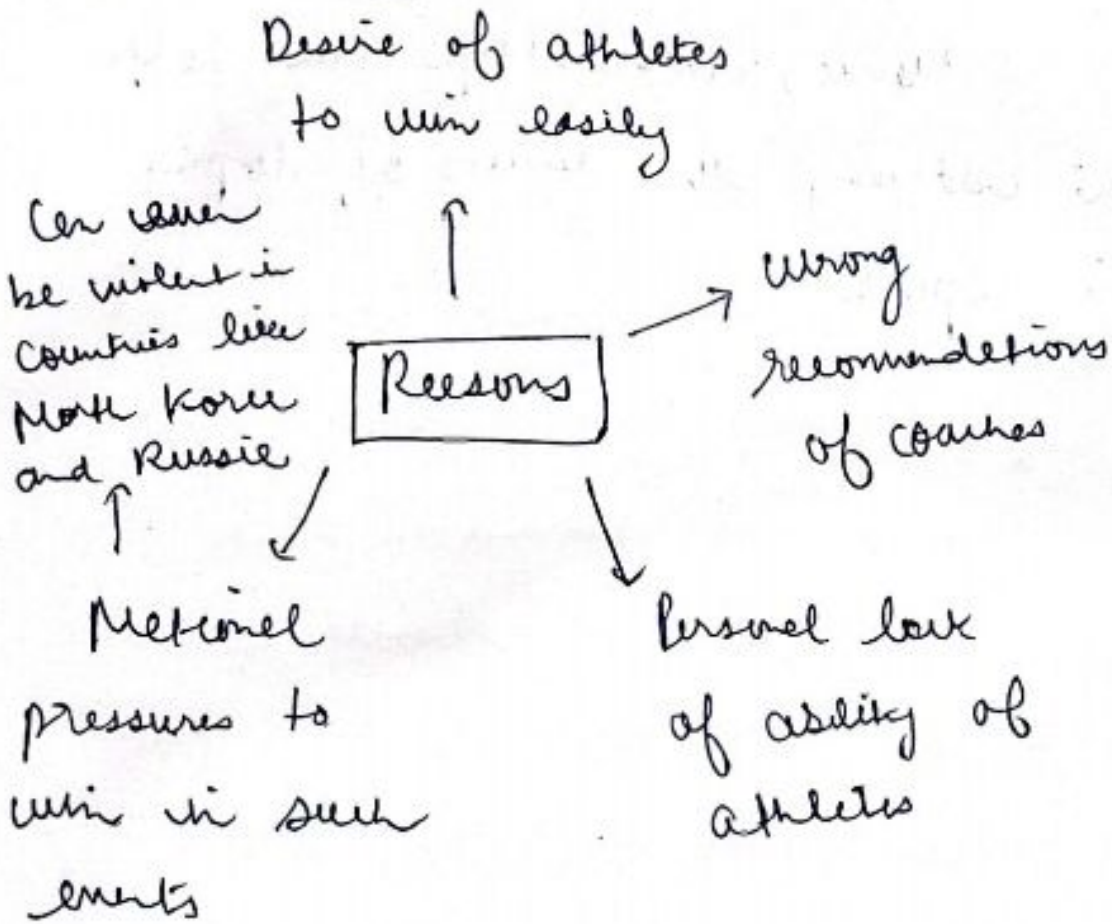 Desire of athletes
to win easily
Can
be violent in
countries like
North Korea
and Russia
Reasons
wrong
recommendations
of coaches
National
pressures to
win in such
events
Personal lack
of ability of
athletes